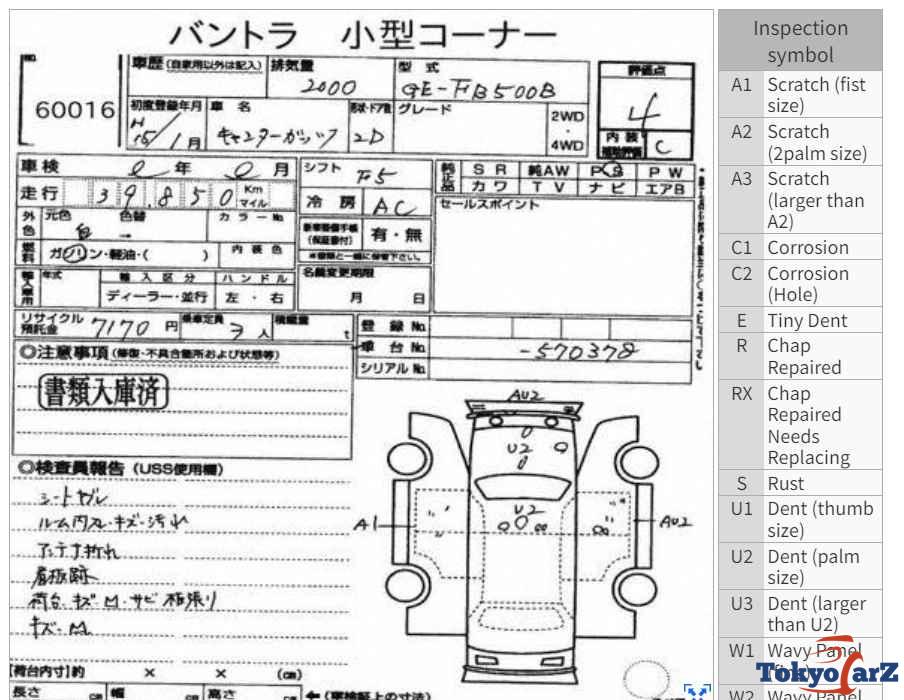 バントラ 小型コーナー
60016
車歴(自家用以外は記入)
排気量
2000
型式
GE-
評価点
4
初度登録年月
H
15/1月
車名
形状・ドア数
2D
グレード
2WD
・
4WD
内装
補助評価
C
車検 年 月
シフト
F5
純正品
SR 純AW PS PW
カワ TV ナビ エアB
走行 39,850 Km マイル
冷房 AC
セールスポイント
外色
元色 色替 カラーNo.
白 →
内装色
新車整備手帳
(保証書付)
有・無
※書類と一緒に保管下さい。
燃料
ガソリン・軽油・( )
輸入車用
年式
輸入区分
ハンドル
ディーラー・並行
左・右
名義変更期限
月 日
リサイクル
預託金
7170円
乗車定員
3人
積載量
t
登録No.
車台No.
-570378
シリアルNo.
◎注意事項(修復・不具合箇所および状態等)
書類入庫済
◎検査員報告(USS使用欄)
シートヤレ
ルーム内スレ・キズ・汚れ
アンテナ折れ
看板跡
荷台キズM・サビ
キズM
AU2
U2
U2
A1
AU2
【荷台内寸】約 × × (cm)
長さ cm 幅 cm 高さ cm
←(車検証上の寸法)
Inspection
symbol
A1 Scratch (fist
size)
A2 Scratch
(2palm size)
A3 Scratch
(larger than
A2)
C1 Corrosion
C2 Corrosion
(Hole)
E Tiny Dent
R Chap
Repaired
RX Chap
Repaired
Needs
Replacing
S Rust
U1 Dent (thumb
size)
U2 Dent (palm
size)
U3 Dent (larger
than U2)
W1 Wavy Panel
W2 Wavy Panel
TokyoCarZ